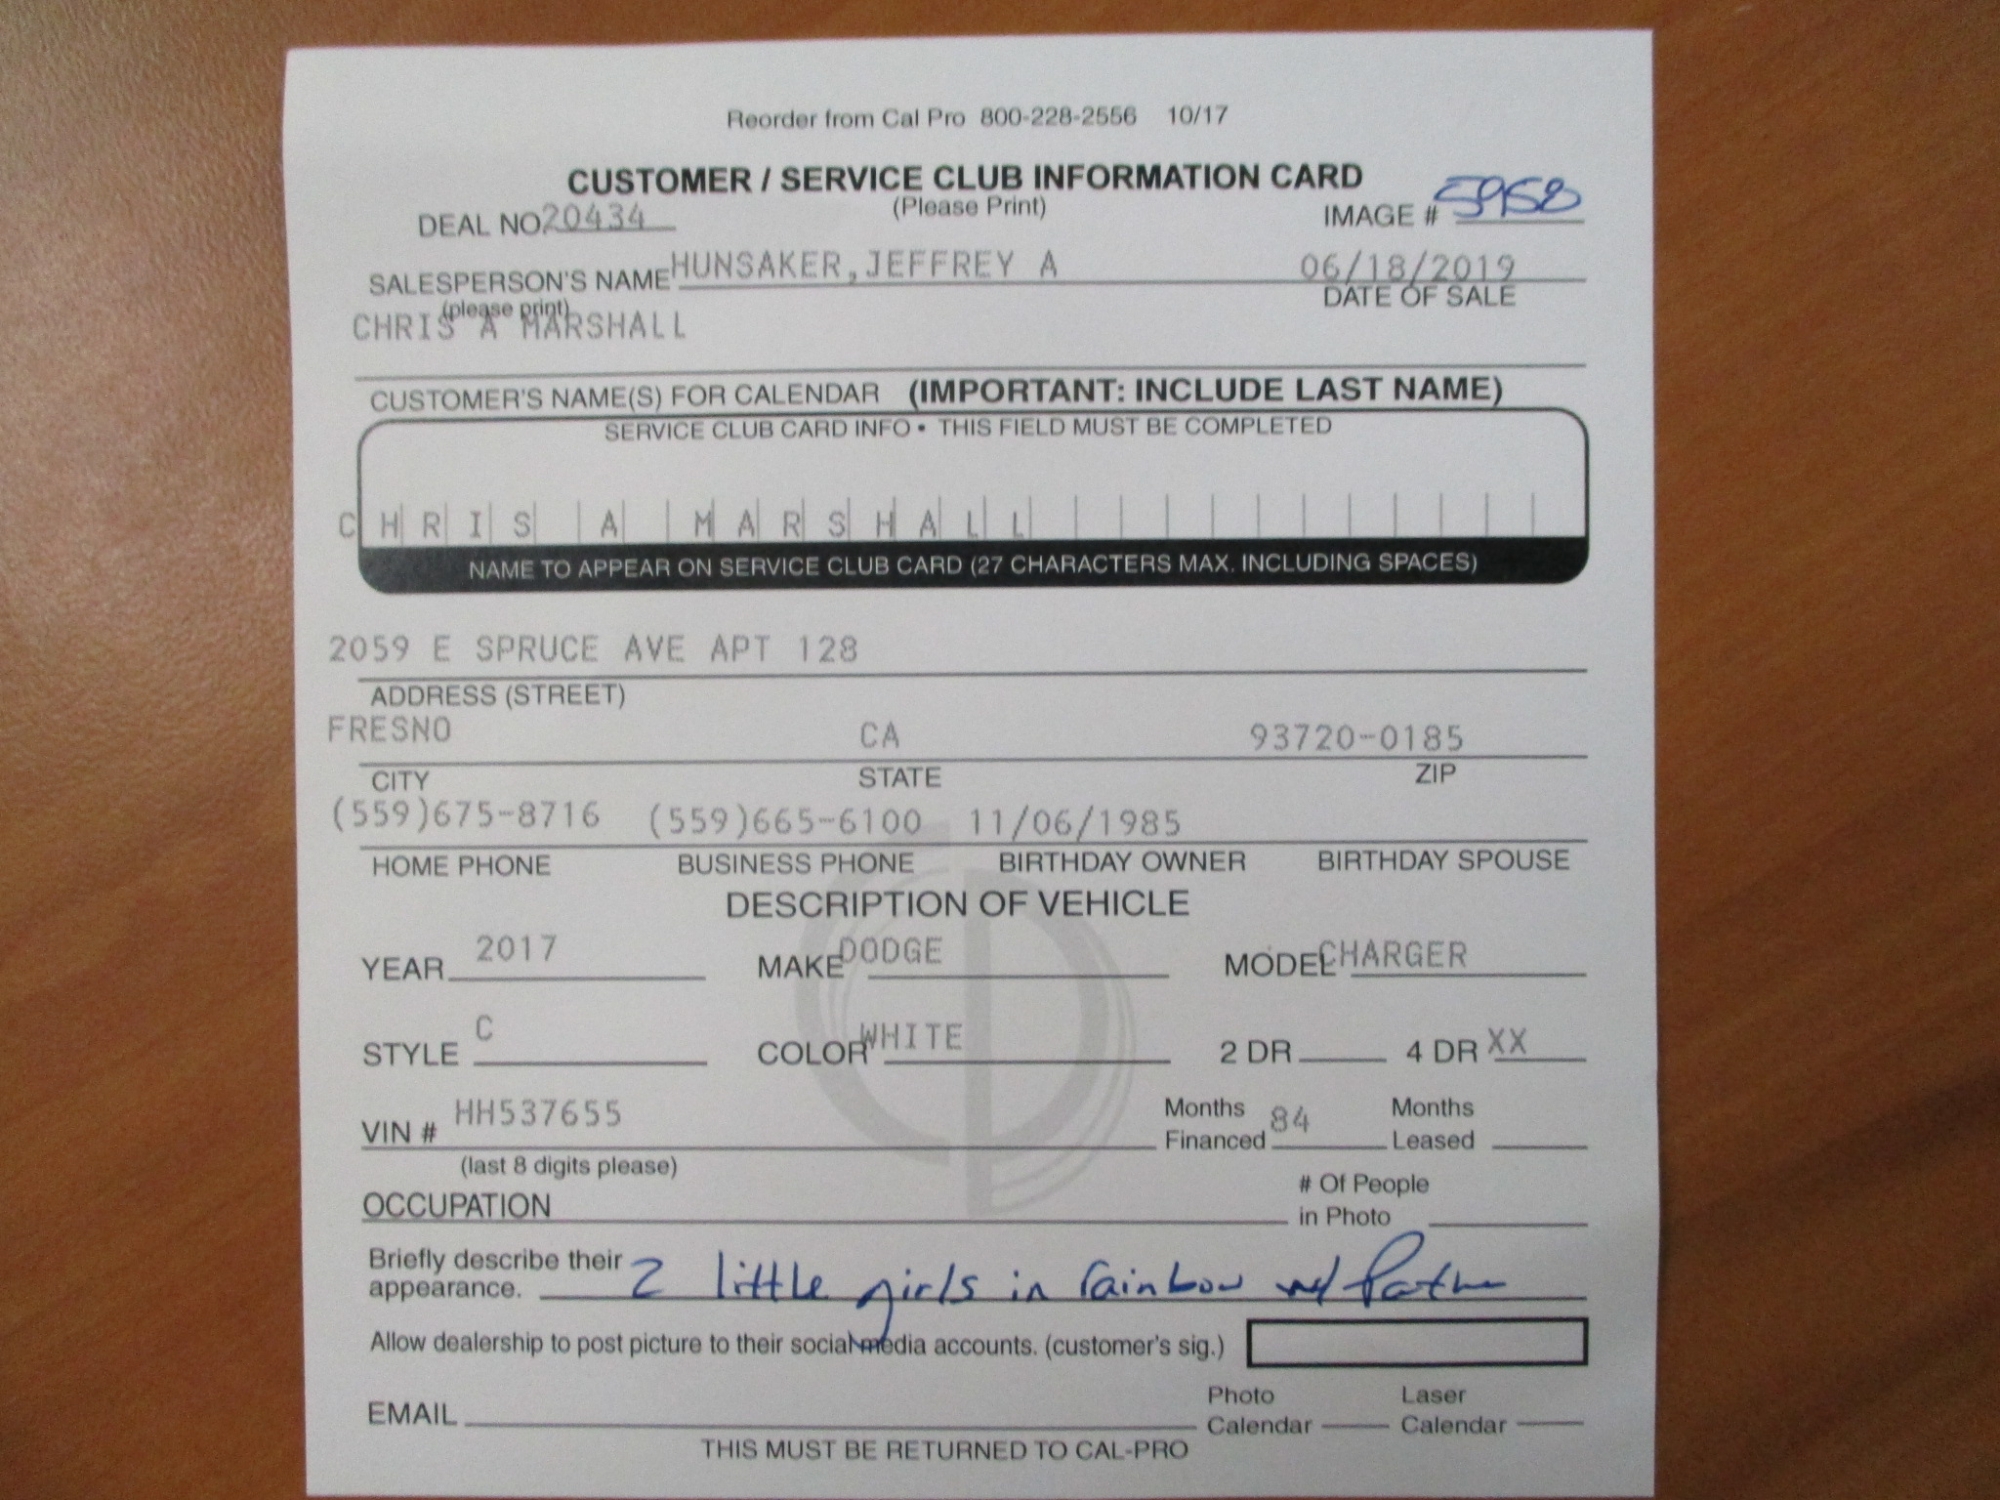 Reorder from Cal Pro 800-228-2556 10/17
CUSTOMER / SERVICE CLUB INFORMATION CARD
(Please Print)
DEAL NO. 20434 IMAGE # 5958
SALESPERSON'S NAME HUNSAKER,JEFFREY A 06/18/2019
(please print) DATE OF SALE
CHRIS A MARSHALL
CUSTOMER'S NAME(S) FOR CALENDAR (IMPORTANT: INCLUDE LAST NAME)
SERVICE CLUB CARD INFO • THIS FIELD MUST BE COMPLETED
C H R I S A M A R S H A L L
NAME TO APPEAR ON SERVICE CLUB CARD (27 CHARACTERS MAX. INCLUDING SPACES)
2059 E SPRUCE AVE APT 128
ADDRESS (STREET)
FRESNO CA 93720-0185
CITY STATE ZIP
(559)675-8716 (559)665-6100 11/06/1985
HOME PHONE BUSINESS PHONE BIRTHDAY OWNER BIRTHDAY SPOUSE
DESCRIPTION OF VEHICLE
YEAR 2017 MAKE DODGE MODEL CHARGER
STYLE C COLOR WHITE 2 DR 4 DR XX
VIN # HH537655 Months Financed 84 Months Leased
(last 8 digits please)
OCCUPATION # Of People in Photo
Briefly describe their appearance. 2 little girls in rainbow w/
Allow dealership to post picture to their social media accounts. (customer's sig.)
EMAIL Photo Calendar Laser Calendar
THIS MUST BE RETURNED TO CAL-PRO